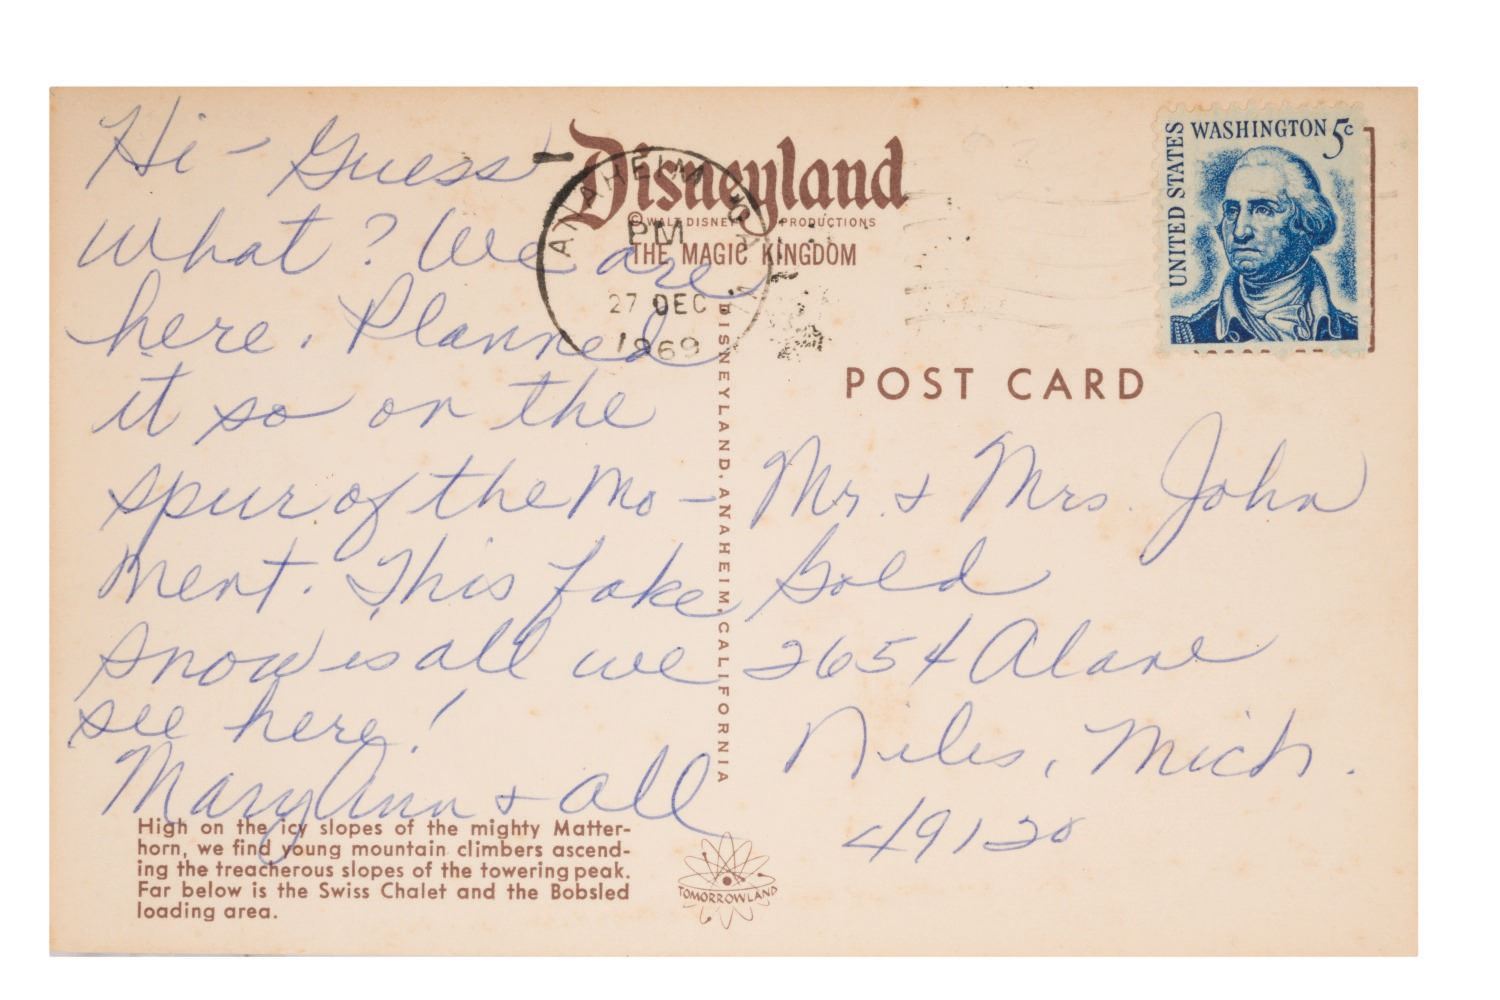 Hi - Guess
What? We are
here. Planned
it so on the
spur of the Mo-
ment. This fake
snow is all we
see here!
Mary Ann & all
High on the icy slopes of the mighty Matter-
horn, we find young mountain climbers ascend-
ing the treacherous slopes of the towering peak.
Far below is the Swiss Chalet and the Bobsled
loading area.
Disneyland
© WALT DISNEY PRODUCTIONS
THE MAGIC KINGDOM
ANAHEIM CA
PM
27 DEC
1969
DISNEYLAND, ANAHEIM, CALIFORNIA
TOMORROWLAND
UNITED STATES
WASHINGTON 5c
POST CARD
Mr. & Mrs. John
Gold
2654
Niles, Mich.
49120